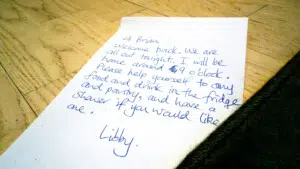 Brian
Welcome back. We are
all out tonight. I will be
home around 9 o'clock.
Please help yourself to any
food and drink in the fridge
and pantry, and have a
shower if you would like
one.
Libby.